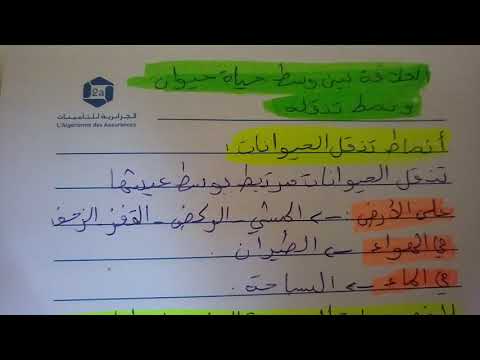 العلاقة بين وسط حياة حيوان
ونمط تنقله
2a
الجزائرية للتأمينات
L'Algérienne des Assurances
أنماط تنقل الحيوانات:
تنقل الحيوانات مرتبط بوسط عيشها
على الأرض -> المشي - الركض - القفز الزحف
في الهواء -> الطيران.
في الماء -> السباحة.